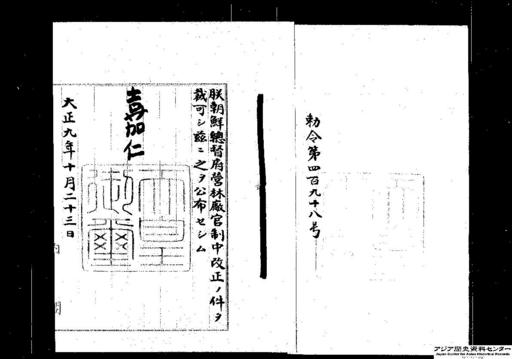 勅令第四百九十八号
朕朝鮮總督府營林廠官制中改正ノ件ヲ
裁可シ茲ニ之ヲ公布セシム
嘉仁
天皇御璽
大正九年十月二十三日
アジア歴史資料センター
Japan Center for Asian Historical Records